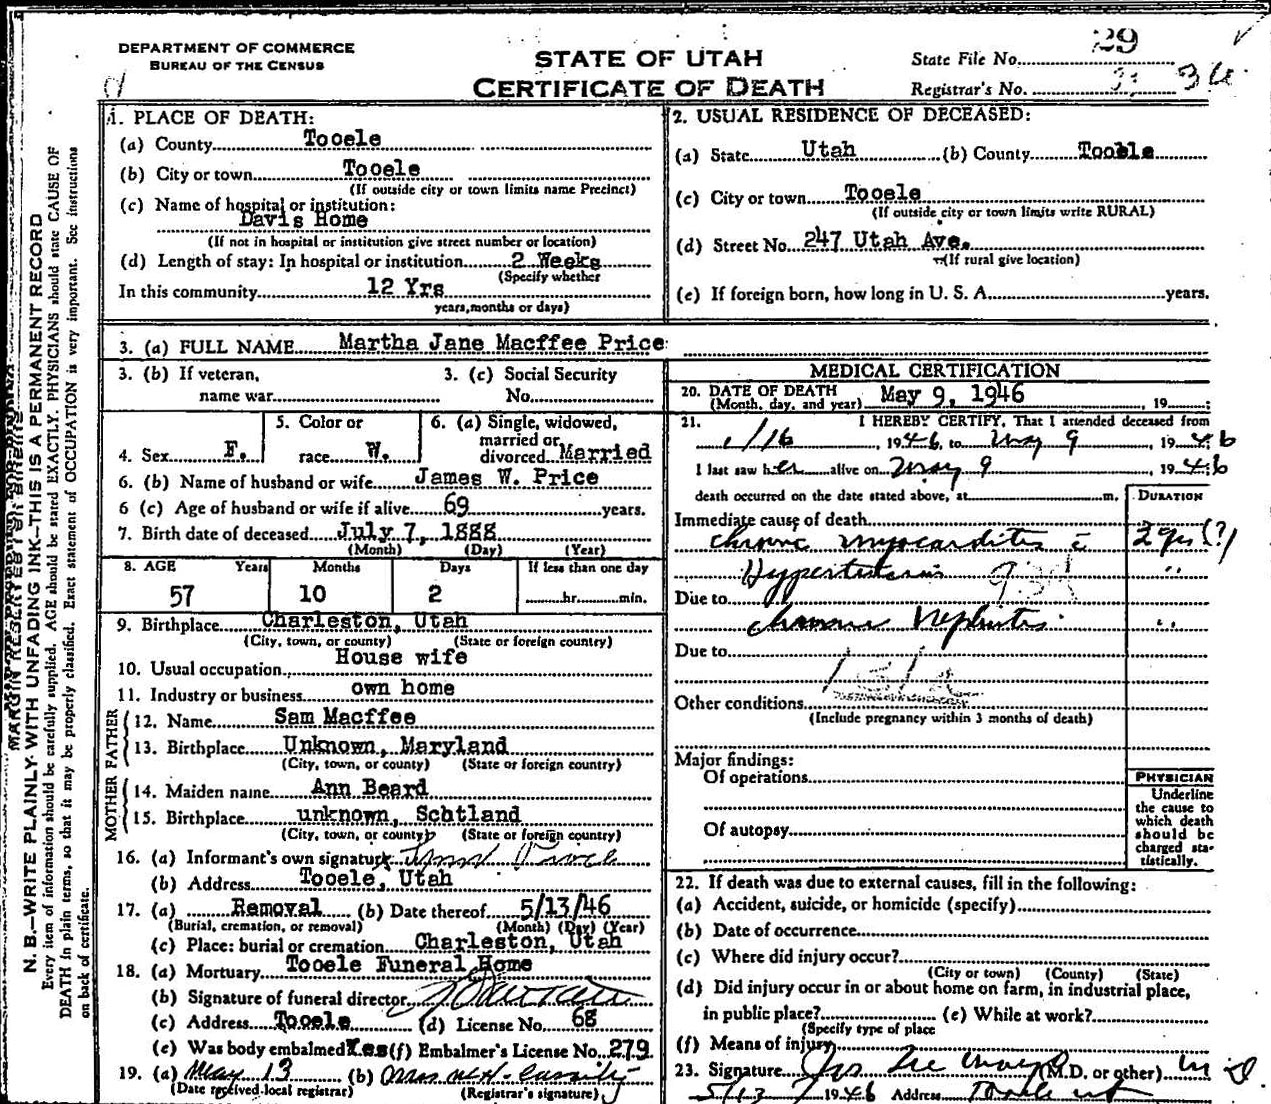 DEPARTMENT OF COMMERCE
BUREAU OF THE CENSUS
STATE OF UTAH
CERTIFICATE OF DEATH
State File No. 29
Registrar's No. 36
MARGIN RESERVED FOR BINDING
N. B.—WRITE PLAINLY WITH UNFADING INK—THIS IS A PERMANENT RECORD
Every item of information should be carefully supplied. AGE should be stated EXACTLY. PHYSICIANS should state CAUSE OF
DEATH in plain terms, so that it may be properly classified. Exact statement of OCCUPATION is very important. See instructions
on back of certificate.
1. PLACE OF DEATH:
(a) County Tooele
(b) City or town Tooele
(If outside city or town limits name Precinct)
(c) Name of hospital or institution:
Davis Home
(If not in hospital or institution give street number or location)
(d) Length of stay: In hospital or institution 2 Weeks
(Specify whether
In this community 12 Yrs
years, months or days)
2. USUAL RESIDENCE OF DECEASED:
(a) State Utah (b) County Tooele
(c) City or town Tooele
(If outside city or town limits write RURAL)
(d) Street No. 247 Utah Ave.
(If rural give location)
(e) If foreign born, how long in U. S. A. years.
3. (a) FULL NAME Martha Jane Macffee Price
3. (b) If veteran, name war
3. (c) Social Security No.
4. Sex F.
5. Color or race W.
6. (a) Single, widowed, married or divorced Married
6. (b) Name of husband or wife James W. Price
6 (c) Age of husband or wife if alive 69 years.
7. Birth date of deceased July 7, 1888
(Month) (Day) (Year)
8. AGE Years Months Days If less than one day
57 10 2 hr. min.
9. Birthplace Charleston, Utah
(City, town, or county) (State or foreign country)
10. Usual occupation House wife
11. Industry or business own home
FATHER
12. Name Sam Macffee
13. Birthplace Unknown, Maryland
(City, town, or county) (State or foreign country)
MOTHER
14. Maiden name Ann Beard
15. Birthplace unknown, Schtland
(City, town, or county) (State or foreign country)
16. (a) Informant's own signature Price
(b) Address Tooele, Utah
17. (a) Removal (b) Date thereof 5/13/46
(Burial, cremation, or removal) (Month) (Day) (Year)
(c) Place: burial or cremation Charleston, Utah
18. (a) Mortuary Tooele Funeral Home
(b) Signature of funeral director
(c) Address Tooele (d) License No. 68
(e) Was body embalmed Yes (f) Embalmer's License No. 279
19. (a) May 13 (b) Mrs
(Date received local registrar) (Registrar's signature)
MEDICAL CERTIFICATION
20. DATE OF DEATH May 9, 1946, 19
(Month, day, and year)
21. I HEREBY CERTIFY, That I attended deceased from
1/16, 1946, to May 9 1946
I last saw her alive on May 9 1946
death occurred on the date stated above, at m.
DURATION
Immediate cause of death
Chronic myocarditis c̄ 2 yrs (?)
Hypertension 93d "
Due to
Chronic Nephritis "
Due to
131a
Other conditions
(Include pregnancy within 3 months of death)
Major findings:
Of operations
Of autopsy
PHYSICIAN
Underline
the cause to
which death
should be
charged sta-
tistically.
22. If death was due to external causes, fill in the following:
(a) Accident, suicide, or homicide (specify)
(b) Date of occurrence
(c) Where did injury occur?
(City or town) (County) (State)
(d) Did injury occur in or about home on farm, in industrial place,
in public place? (e) While at work?
(Specify type of place
(f) Means of injury
23. Signature (M.D. or other) M D
5/13 1946 Address Tooele Ut